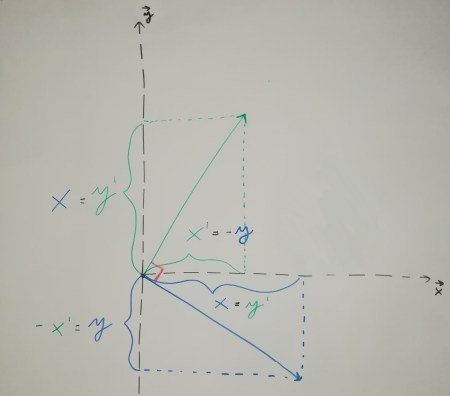 y
x = y'
x' = -y
x
x = y'
-x' = y